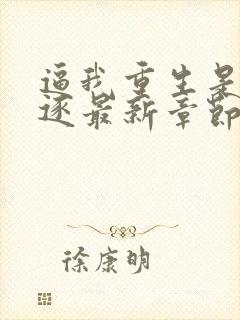 逼我重生是
逐最新章节
徐康明